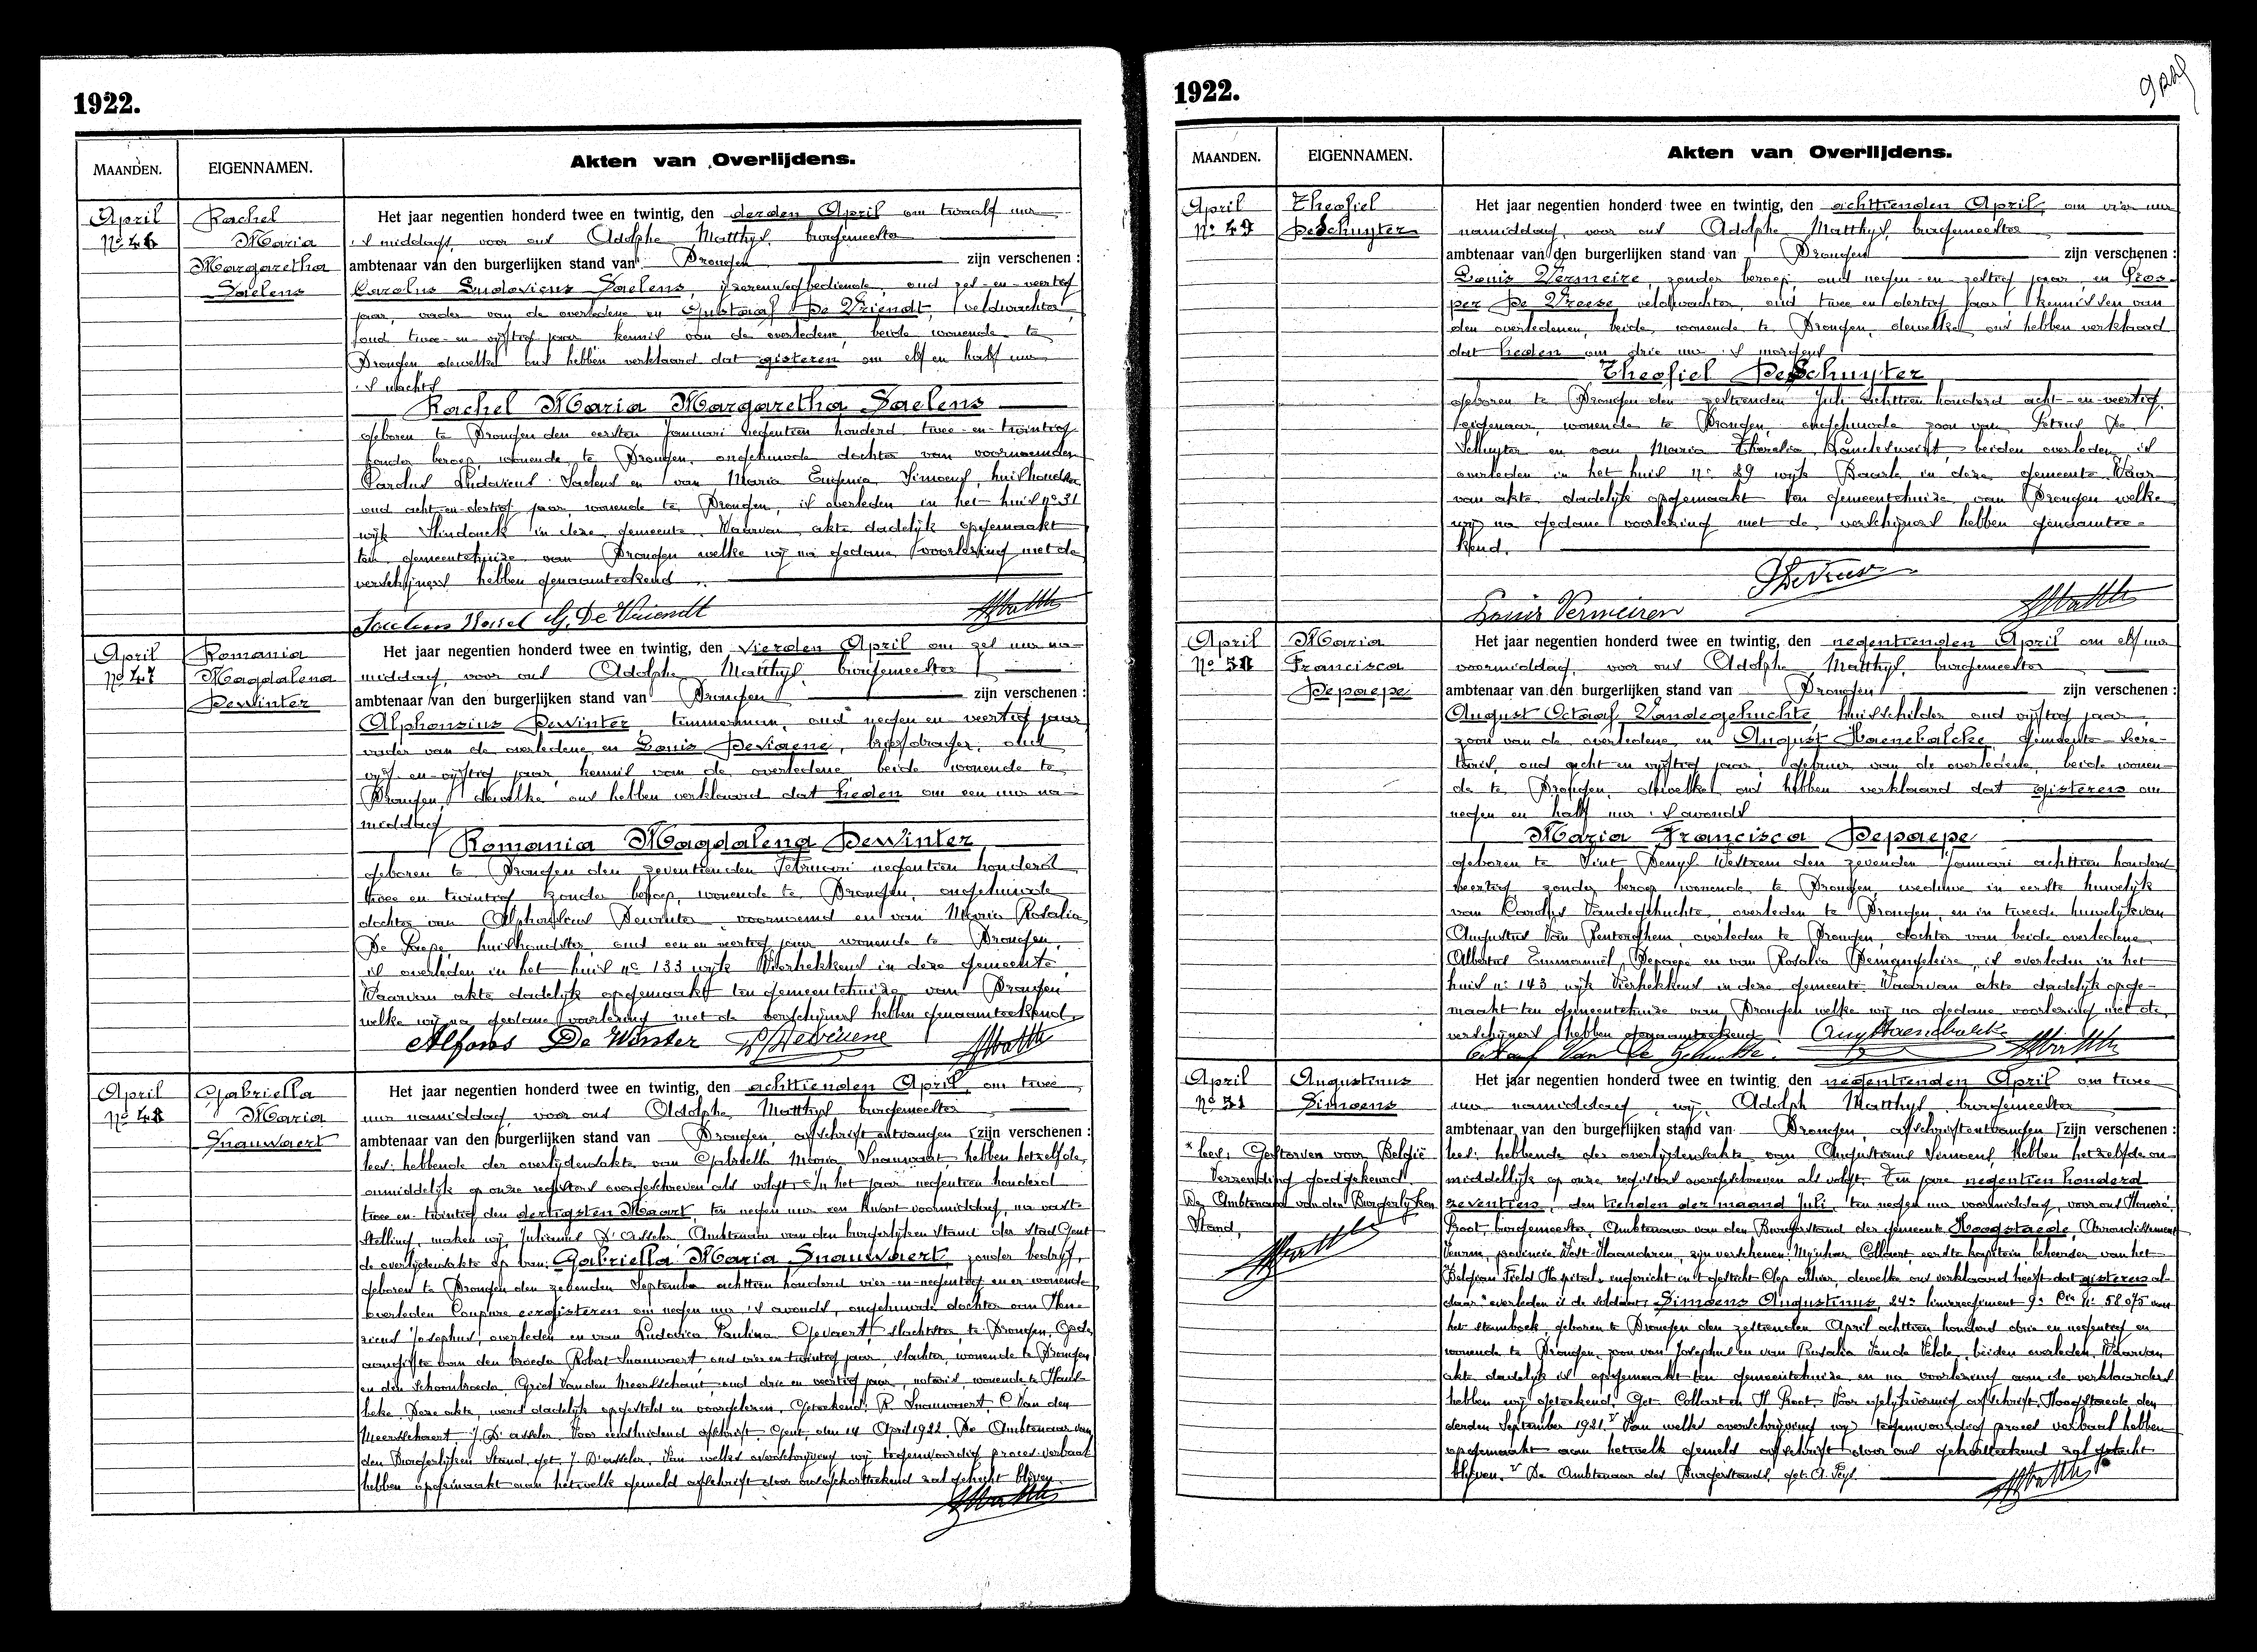 1922.
MAANDEN.
EIGENNAMEN.
Akten van Overlijdens.
April
No 46
Rachel
Maria
Margaretha
Saelens
Het jaar negentien honderd twee en twintig, den derden April om twaalf uur
's middags, voor ons Adolphe Matthys, burgemeester
ambtenaar van den burgerlijken stand van Drongen zijn verschenen :
Carolus Ludovicus Saelens, ijzerenwegbediende, oud zes-en-veertig
jaar, vader van de overledene en Gustaaf De Vriendt, veldwachter,
oud twee-en-vijftig jaar kennis van de overledene, beide wonende te
Drongen, dewelke ons hebben verklaard dat gisteren om elf en half uur
's nachts
Rachel Maria Margaretha Saelens
geboren te Drongen den eersten Januari negentien honderd twee-en-twintig
zonder beroep, wonende te Drongen, ongehuwde dochter van voornoemden
Carolus Ludovicus Saelens en van Maria Eugenia Simoens, huishoudster
oud acht-en-dertig jaar, wonende te Drongen, is overleden in het huis no 31
wijk Slindonck in deze gemeente. Waarvan akte dadelijk opgemaakt
ten gemeentehuize van Drongen welke wij na gedane voorlezing met de
verschijners hebben genaamteekend.
Saelens Karel G. De Vriendt
April
No 47
Romania
Magdalena
DeWinter
Het jaar negentien honderd twee en twintig, den vierden April om zes uur na-
middag, voor ons Adolphe Matthys, burgemeester
ambtenaar van den burgerlijken stand van Drongen zijn verschenen :
Alphonsius DeWinter, timmerman, oud negen en veertig jaar
vader van de overledene en Louis Deviaene, briefdrager, oud
vijf-en-vijftig jaar, kennis van de overledene beide wonende te
Drongen, dewelke ons hebben verklaard dat heden om een uur na-
middag
Romania Magdalena DeWinter
geboren te Drongen den zeventienden Februari negentien honderd
twee en twintig zonder beroep, wonende te Drongen, ongehuwde
dochter van Alphonsius Dewinter voornoemd en van Maria Rosalia
De Paepe, huishoudster, oud een en veertig jaar wonende te Drongen,
is overleden in het huis no 133 wijk Vierhekkens in deze gemeente.
Waarvan akte dadelijk opgemaakt ten gemeentehuize van Drongen
welke wij na gedane voorlezing met de verschijners hebben genaamteekend.
Alfons De Winter
April
No 48
Gabriella
Maria
Snauwaert
Het jaar negentien honderd twee en twintig, den achttienden April, om twee
uur namiddag, voor ons Adolphe Matthys burgemeester
ambtenaar van den burgerlijken stand van Drongen, afschrift ontvangen [zijn verschenen :
lees: hebbende der overlijdensakte van Gabriella Maria Snauwaert, hebben hetzelfde,
onmiddelijk op onze registers overgeschreven als volgt: In het jaar negentien honderd
twee en-twintig den dertigsten Maart, ten negen uur een kwart voormiddag, na vast-
stelling, maken wij Julianus D'Asseler Ambtenaar van den burgerlijken Stand der stad Gent
de overlijdensakte op van: Gabriella Maria Snauwaert zonder bedrijf,
geboren te Drongen den zevenden September achttien honderd vier-en-negentig en er wonende
overleden Coupure eergisteren om negen uur 's avonds, ongehuwde dochter van Hen-
ricus Josephus, overleden en van Ludovica Paulina Gevaert, slachtster, te Drongen, Op de
aangifte van den broeder Robert Snauwaert oud vier en twintig jaar, slachter, wonende te Drongen
en den Schoonbroeder, Cyriel Van den Meersschaut, oud drie en veertig jaar, notaris, wonende te
beke. Deze akte, werd dadelijk opgesteld en voorgelezen. Geteekend: R. Snauwaert, C Van den
Meersschaert J. D'asseler. Voor eensluidend afschrift. Gent, den 14 April 1922. De Ambtenaar van
den Burgerlijken Stand, get. J. D'asseler. Van welke overschrijving wij tegenwoordig proces-verbaal
hebben opgemaakt aan hetwelk gemeld afschrift door ons gehorteekend zal gehecht blijven.
1922.
MAANDEN.
EIGENNAMEN.
Akten van Overlijdens.
April
No 49
Theofiel
DeSchuyter
Het jaar negentien honderd twee en twintig, den achttienden April, om vier uur
namiddag, voor ons Adolphe Matthys, burgemeester
ambtenaar van den burgerlijken stand van Drongen zijn verschenen :
Louis Vermeire, zonder beroep, oud negen-en zestig jaar, en Pros-
per De Vreese, veldwachter, oud twee en dertig jaar, kennissen van
den overledenen, beide, wonende te Drongen, dewelke ons hebben verklaard
dat heden om drie uur 's morgens
Theofiel DeSchuyter
geboren te Drongen den zestienden Juli achttien honderd acht-en-veertig,
eigenaar, wonende te Drongen, ongehuwde zoon van Petrus De
Schuyter en van Maria Theresia, beiden overleden, is
overleden in het huis no 29 wijk Baarle in deze gemeente. Waar-
van akte dadelijk opgemaakt ten gemeentehuize van Drongen welke
wij na gedane voorlezing met de verschijners hebben genaamtee-
kend.
Louis Vermeiren
April
No 50
Maria
Francisca
Depaepe
Het jaar negentien honderd twee en twintig, den negentienden April om elf uur
voormiddag, voor ons Adolphe Matthys, burgemeester
ambtenaar van den burgerlijken stand van Drongen zijn verschenen :
August Octaaf Vandegehuchte, huisschilder oud vijftig jaar,
zoon van de overledene, en August Haenebalcke, gemeente-secre-
taris, oud acht en vijftig jaar, gebuur van de overledene, beide wonen-
de te Drongen, dewelke ons hebben verklaard dat gisteren om
negen en half uur 's avonds
Maria Francisca Depaepe
geboren te Sint Denys Westrem den zevenden Januari achttien honderd
veertig zonder beroep wonende te Drongen, weduwe in eerste huwelijk
van Carolus Vandegehuchte, overleden te Drongen, en in tweede huwelijk van
Augustus Van Renterghem, overleden te Drongen, dochter van beide overledene
Albertus Emmanuël Depaepe en van Rosalia, is overleden in het
huis no 143 wijk Vierhekkens in deze gemeente. Waarvan akte dadelijk opge-
maakt ten gemeentehuize van Drongen welke wij na gedane voorlezing met de
verschijners hebben genaamteekend Aug Haenebalcke
Octaaf Van De Gehuchte.
April
No 51
Augustinus
Simoens
* lees: Gestorven voor België
Verzending goedgekeurd.
De Ambtenaar van den Burgerlijken
Stand,
Het jaar negentien honderd twee en twintig, den negentienden April om twee
uur namiddag, wij, Adolph Matthys, burgemeester
ambtenaar van den burgerlijken stand van Drongen, afschrift ontvangen [zijn verschenen :
lees: hebbende der overlijdensakte van Augustinus Simoens, hebben hetzelfde on-
middellijk op onze registers overgeschreven als volgt. Ten jare negentien honderd
zeventien, den tienden der maand Juli, ten negen uur voormiddag, voor ons Honoré
Proot, burgemeester, Ambtenaar van den Burgerstand der gemeente Hoogstaede, Arrondissement
Veurne, provincie West-Vlaanderen, zijn verschenen: Mijnheer Collaert, eerste kapitein beheerder van het
Belgian Field Hospital, ingericht in 't gesticht Clep alhier, dewelke ons verklaard heeft dat gisteren al-
daar * overleden is de soldaat: Simoens Augustinus, 24e linieregiment 9e Cie no 58075 van
het stamboek, geboren te Drongen den zestienden April achttien honderd drie en negentig en
wonende te Drongen, zoon van Josephus en van Rosalia Van de Velde, beiden overleden. Waarvan
akte dadelijk is opgemaakt ten gemeentehuize en na voorlezing aan de verklaarders
hebben wij geteekend. Get. Collart en H. Proot. Voor eensvormig afschrift. Hoogstaede, den
derden September 1921. Van welke overschrijving wij tegenwoordig proces verbaal hebben
opgemaakt aan hetwelk gemeld afschrift door ons gehorteekend zal gehecht
blijven. De Ambtenaar des Burgerstands, get. A. Feys.